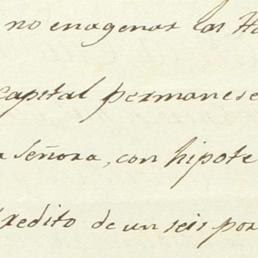 no enagenar las Ha
capital permanese
a Señora, con hipote
redito de un seis por